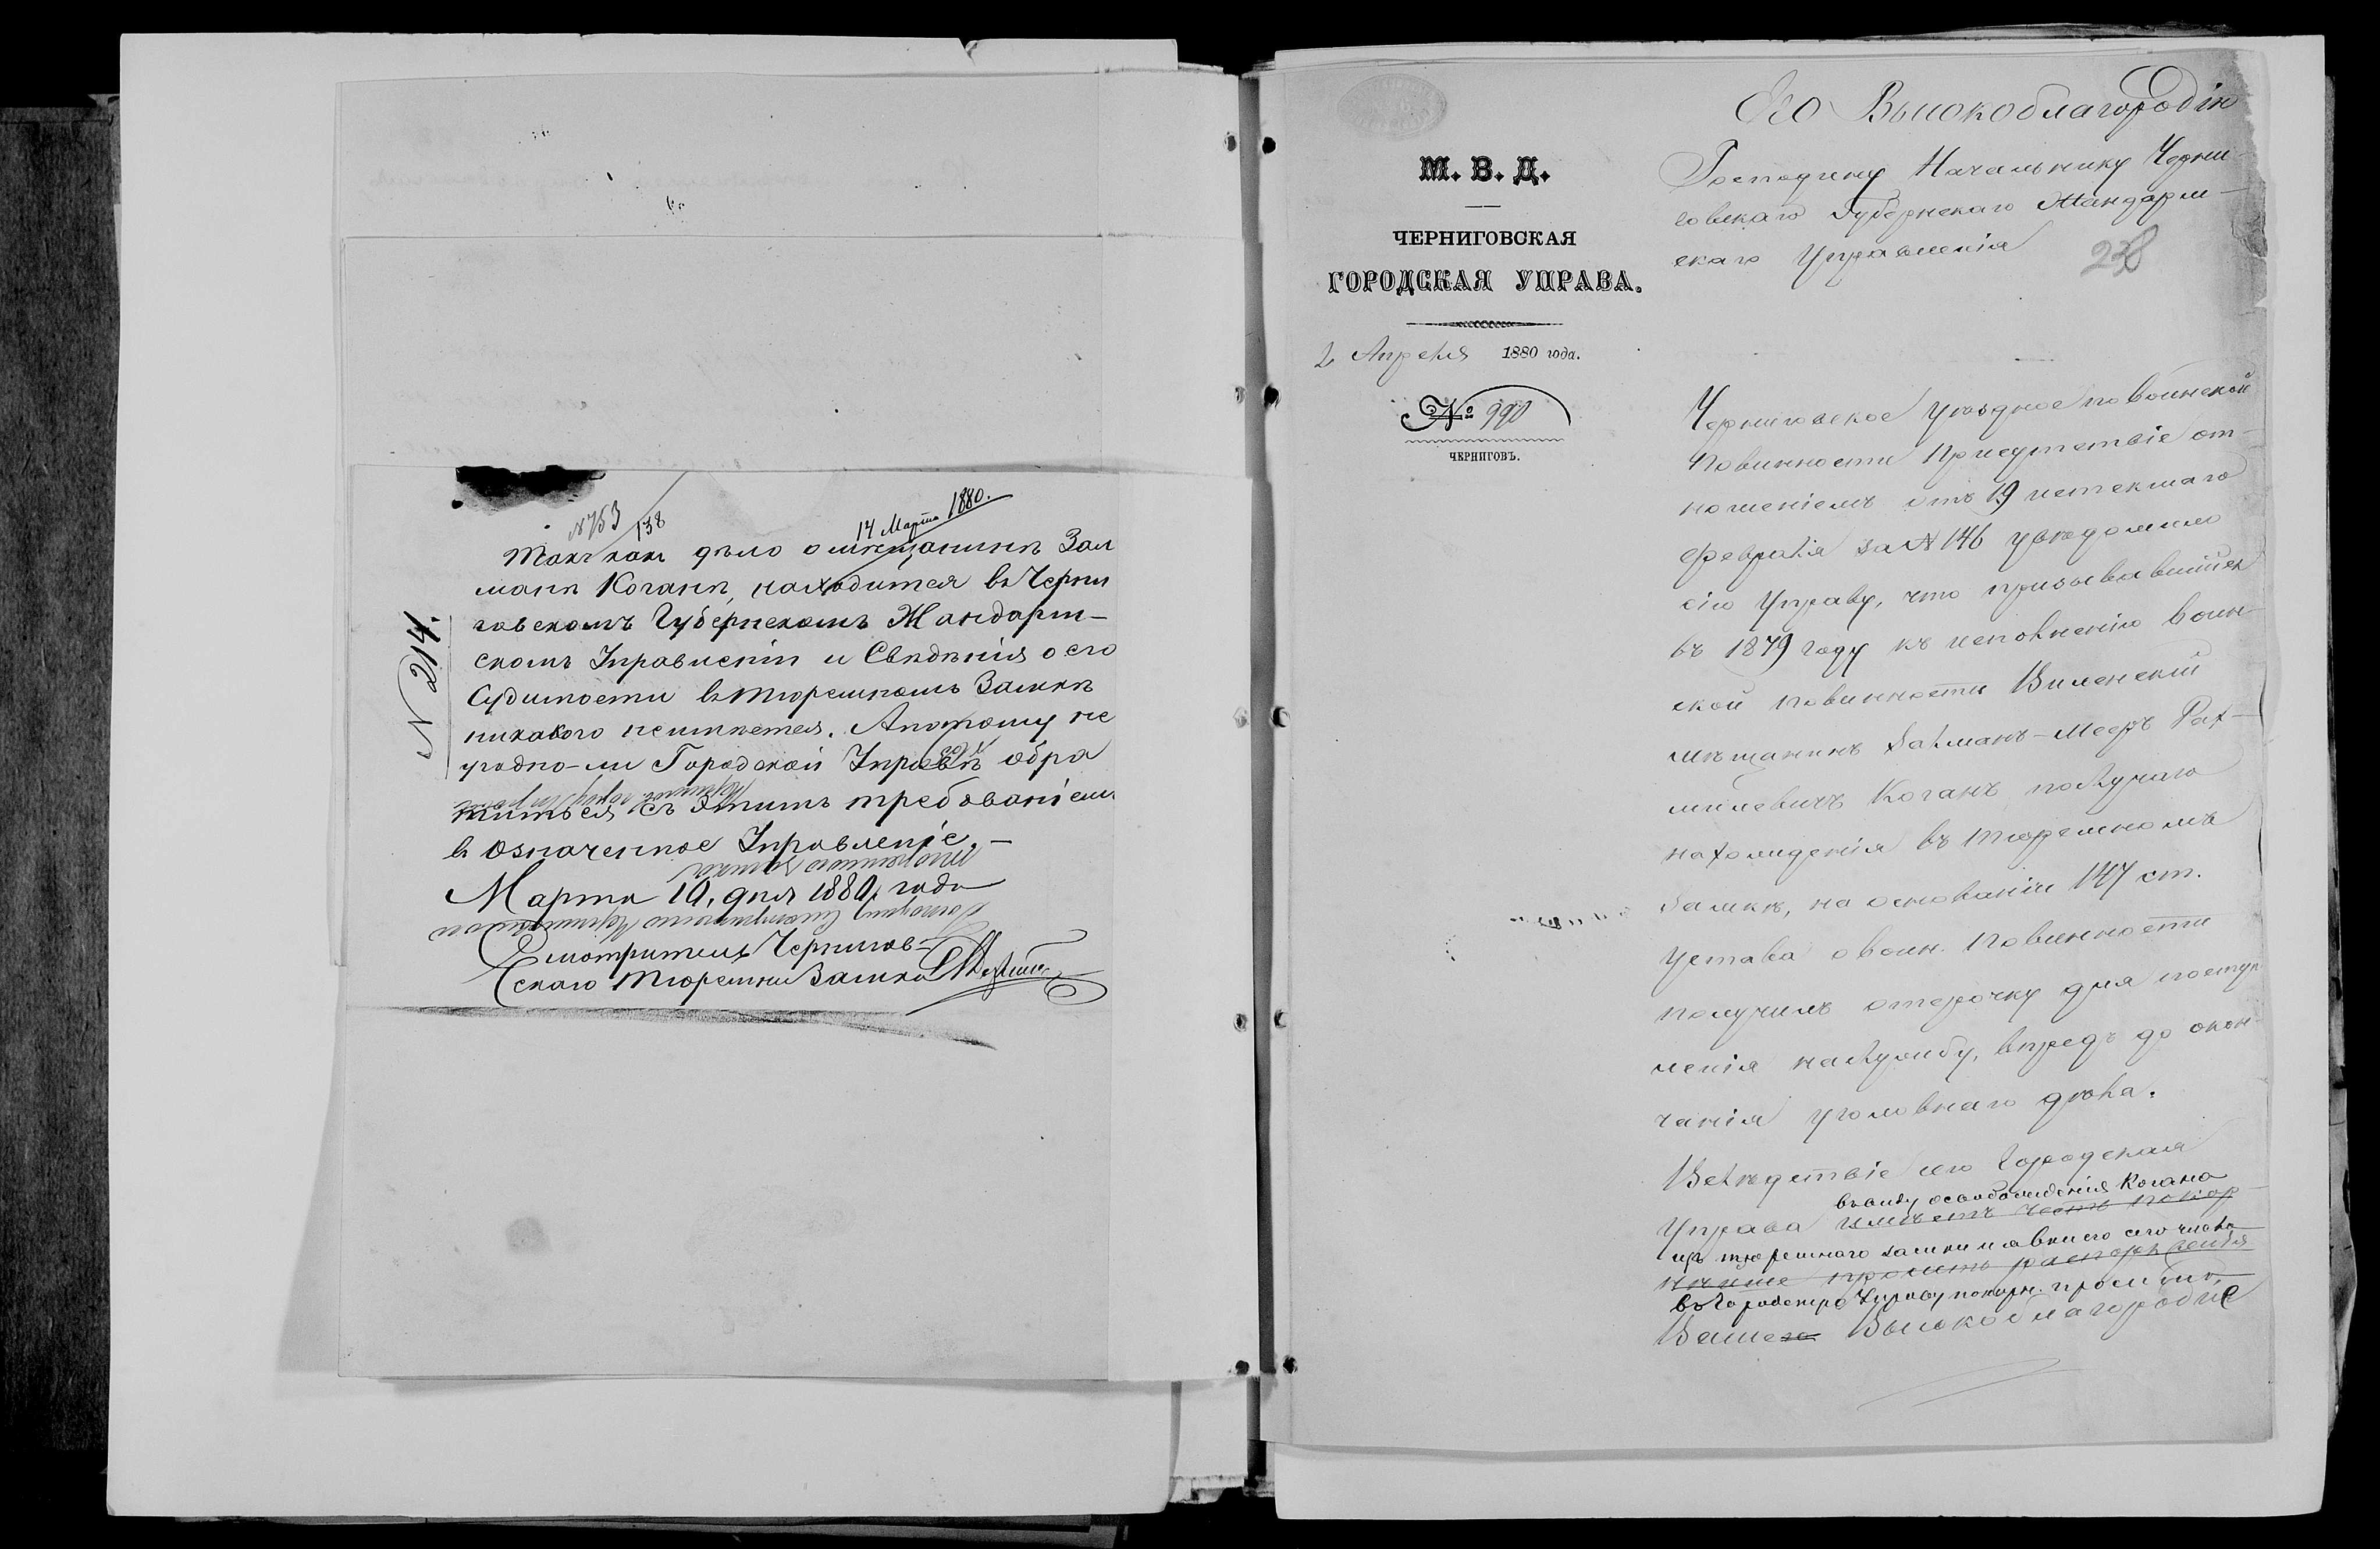 № 753
138
14 Марта 1880.
№ 214.
Такъ какъ дѣло о мѣщанинѣ Зал
манѣ Коганѣ, находится въ Черни
говскомъ Губернскомъ Жандарм-
скомъ Управленіи и Свѣдѣнія о его
Судимости въ тюремномъ Замкѣ
никакого неимѣется. Апотому не
угодно-ли Городской Управѣ обра
титься съ этимъ требованіемъ
въ означенное Управленіе.—
Марта 10, дня 1880, года
Смотритель Чернигов-
скаго Тюремна Замка
Его Высокоблагородію
Господину Начальнику Черни-
говскаго Губернскаго Жандарм-
скаго Управленія
238
М. В. Д.
ЧЕРНИГОВСКАЯ
ГОРОДСКАЯ УПРАВА.
2 Апрѣля 1880 года.
№ 990
ЧЕРНИГОВЪ.
Черниговское уѣздное по воинской
Повинности Присутствіе от-
ношеніемъ отъ 19 истекшаго
Февраля за № 146 увѣдомило
сію Управу, что призывавшійся
въ 1879 году къ исполненію воин-
ской повинности Виленскій
мѣщанинъ Залманъ-Мееръ Рах-
милевичъ Коганъ, по случаю
нахожденія въ тюремномъ
замкѣ, на основаніи 147 ст.
Устава о воин. повинности
получилъ отсрочку для поступ
ленія на службу, впредь до окон-
чанія уголовнаго дѣла.
Вслѣдствіе сего Городская
въ виду освобожденія Когана
Управа имѣетъ честь покор
изъ тюремнаго замка и явки его сего числа
нѣйше просить распоряженія
въ Городскую Управу покорн. проситъ,
Вашего Высокоблагородіе